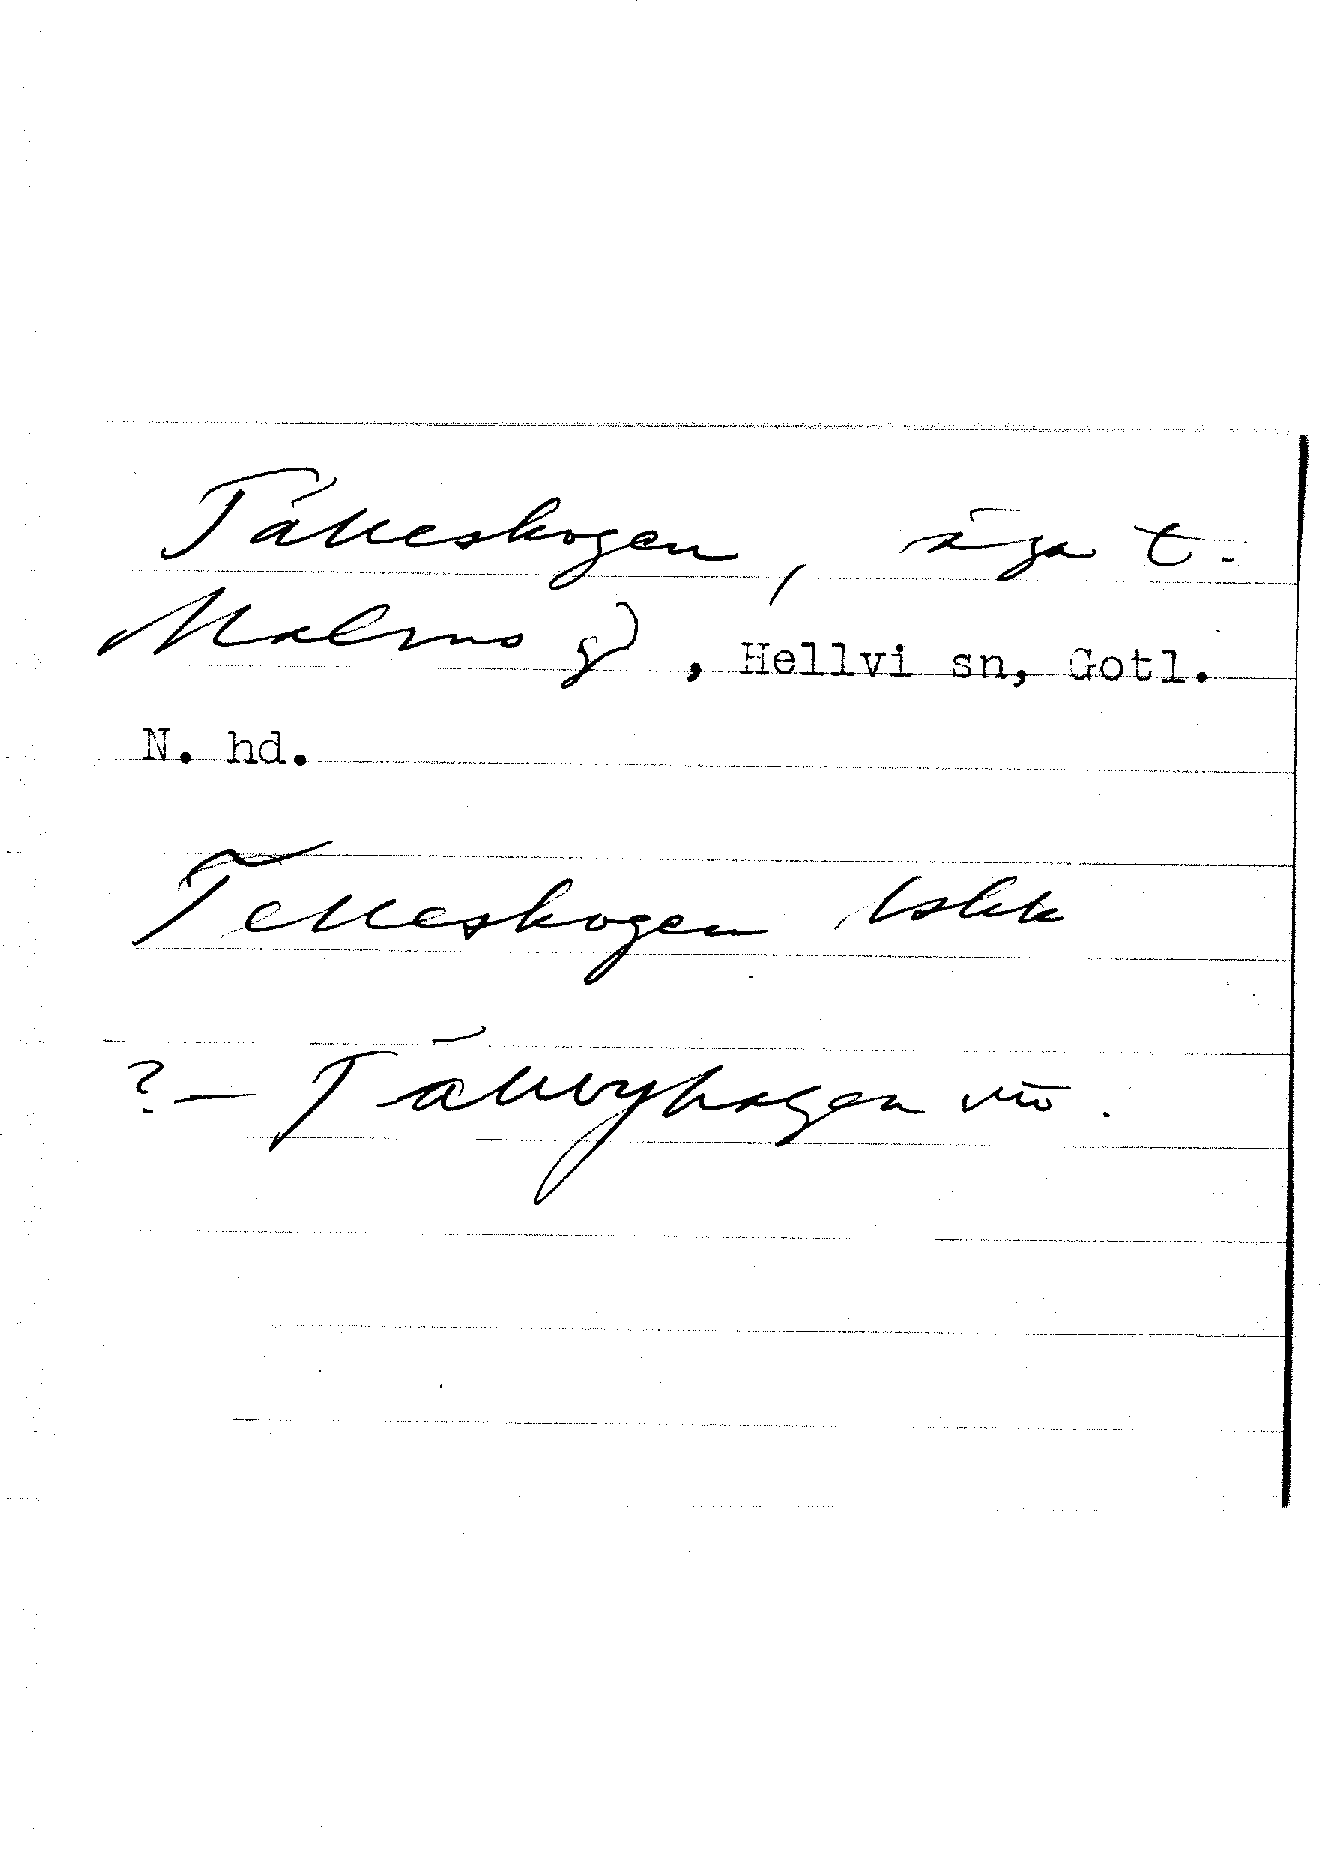 Tälleskogen, äga t.
Malms gd, Hellvi sn, Gotl.
N. hd.
Telleskogen Iskk
? – Tällbyhagen